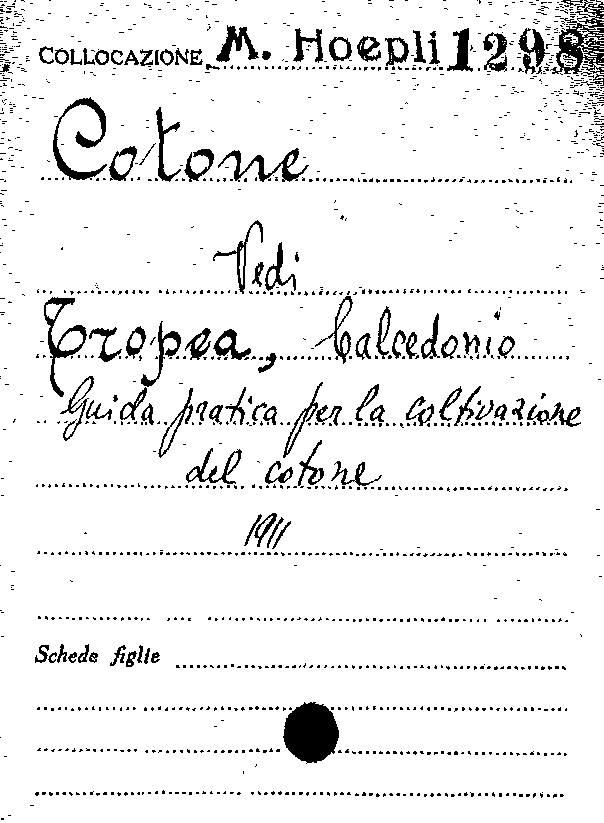 COLLOCAZIONE M. Hoepli 1298
Cotone
Vedi
Tropea, Calcedonio
Guida pratica per la coltivazione
del cotone
1911
Schede figlie